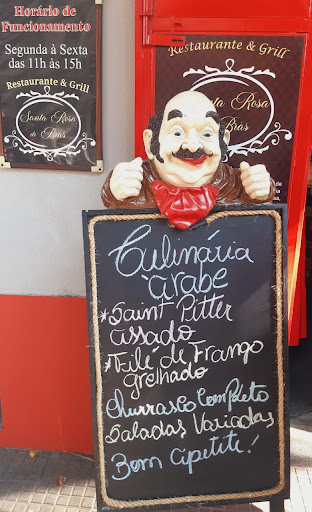 Horário de
Funcionamento
Segunda à Sexta
das 11h às 15h
Restaurante & Grill
Santa Rosa
do Brás
Restaurante & Grill
Santa Rosa
Brás
Culinária
árabe
*Saint Pitter
assado
*Filé de Frango
grelhado
Churrasco Completo
Saladas Variadas
Bom Apetite!